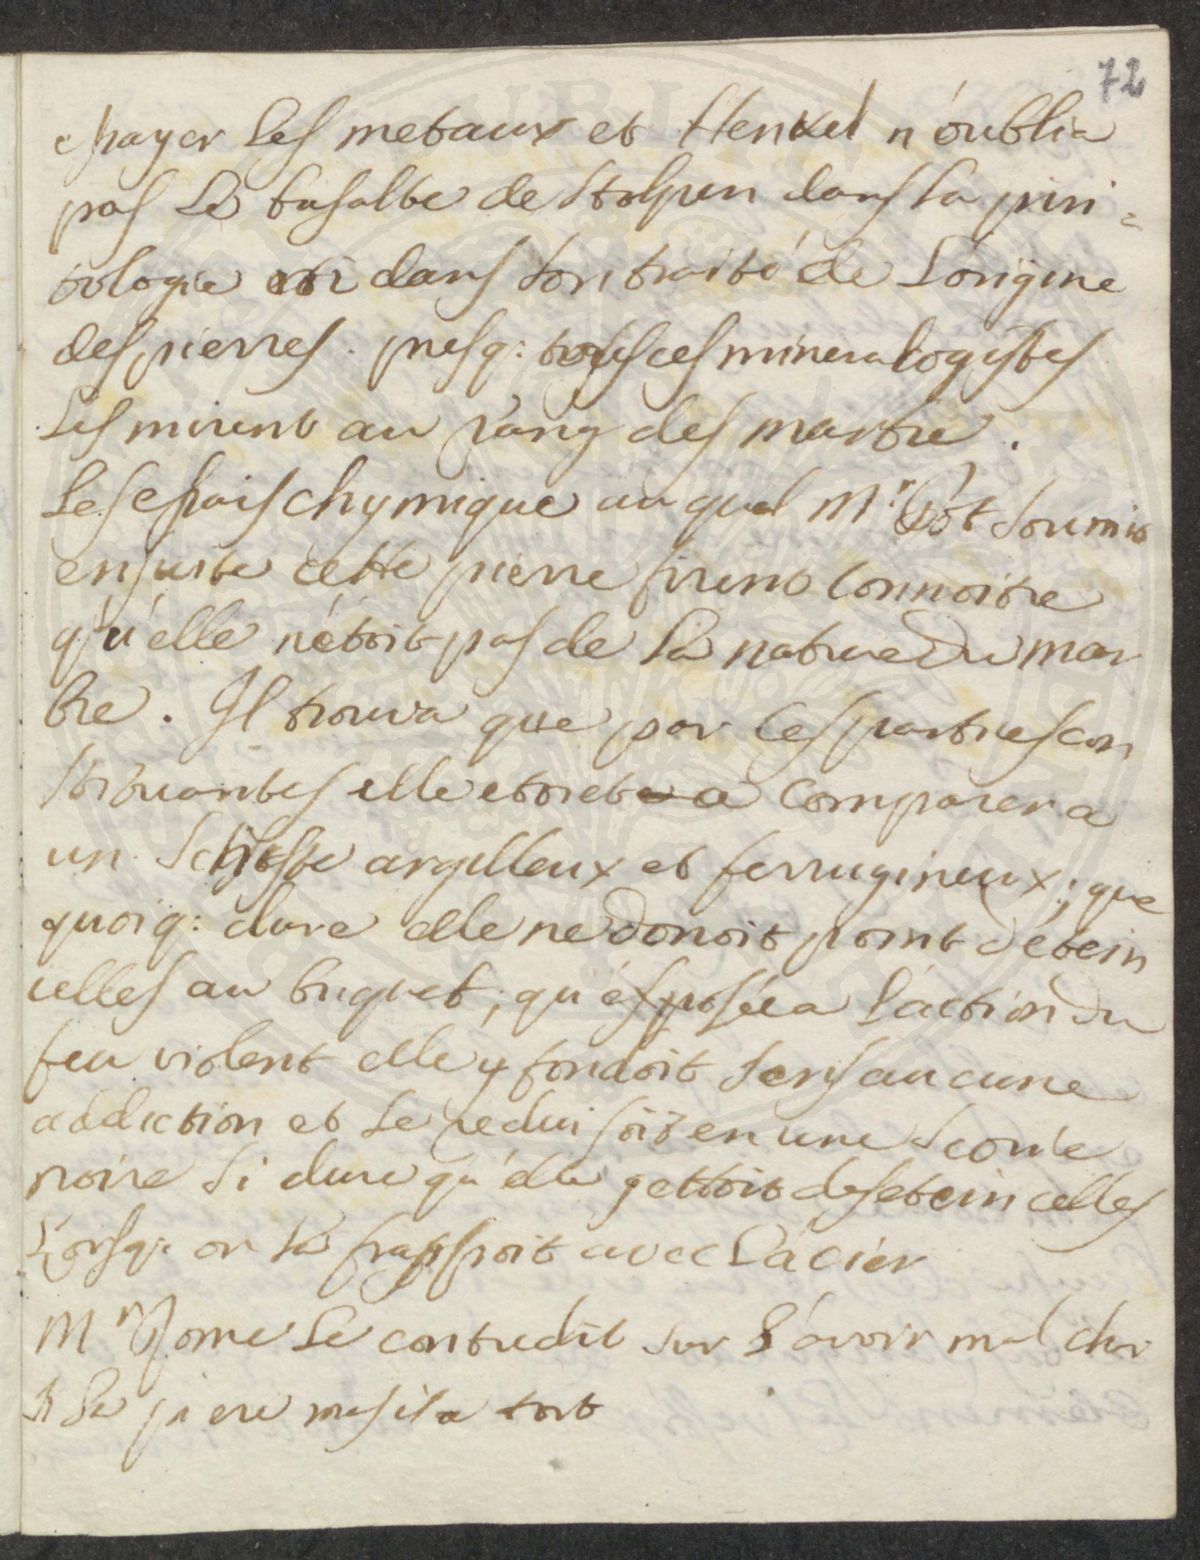 72
essayer les metaux et Henkel n'oublia
pas le basalte de Stolpen dans sa piri=
tologie et dans son traité de l'origine
des pierres. presq: tous ces mineralogistes
les mirent au rang des marbre.
Les essais chymique au quel Mr. Pot soumit
ensuite cette pierre firent connoitre
qu'elle n'étoit pas de la nature du mar
bre. Il trouva que par ces parties con
stituantes elle etoiet a comparer a
un Schiste argilleux et ferrugineux; que
quoiq: dure elle ne donoit point d'étein
celles au briquet; qu'exposée a l'action du
feu violent elle y fondoit sens aucune
addiction et se reduisoit en une scorie
noire si dure qu'elle jettoit des etein celles
Lorsq: on la frappoit avec l'acier
Mr Rome le contredit sur l'avoir mal choi
si sa piere mais il a tort